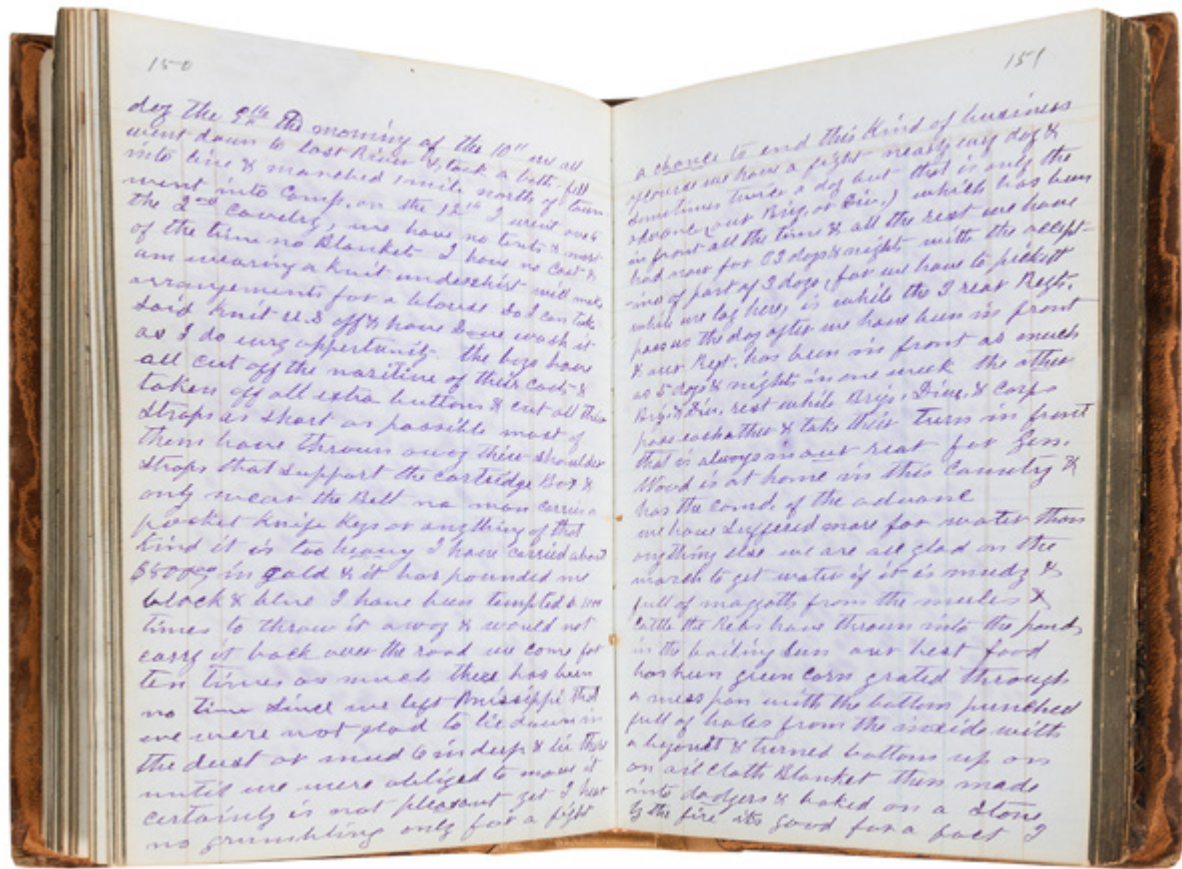 150
day the 9th the morning of the 10" we all
went down to lost River & took a bath - fell
into line & marched 1 mile north of town
went into Camp, on the 12th I went over to
the 2nd Cavelry, we have no tents & most
of the time no Blanket I have no Coat &
am wearing a knit undershirt will make
arrangements for a blouse So I can take
Said Knit U.S off & have Some wash it
as I do evry oppertunity the boys have
all cut off the of their coats &
taken off all extra buttons & cut all their
Straps as short as possible most of
them have thrown away their shoulder
Straps that Support the cartridge Box &
only wear the Belt no man carries a
pocket Knife Keys or anything of that
kind it is too heavy I have carried about
in gold & it has pounded me
black & blue I have been tempted a 1000
times to throw it away & would not
carry it back over the road we come for
ten times as much there has been
no time Since we left Mississippi that
we were not glad to lie down in
the dust or mud 6 in deep & lie there
until we were obliged to move it
certainly is not pleasant yet I hear
no grumbling only for a fight
151
a chance to end this Kind of business
ofcourse we have a fight nearly evry day &
Sometimes twice a day but that is only the
advance (our Brig, or Div,) which has been
in front all the time & all the rest we have
had now for 03 days & night with the accept-
ins of part of 3 days, (for we have to pickitt
while we lay here, is while the 3 rear Regts,
pass us the day after we have been in front
& our Regt. has been in front as much
as 5 days & nights in one week the other
Brig & Div, rest while Brigs, Divs, & Corps
pass eachother & take their turn in front
that is always in our rear for Gen.
Wood is at home in this Country &
has the comd, of the advance
we have Suffered more for water than
anything else we are all glad on the
march to get water if it is mudy &
full of maggotts from the mules &
Cattle the Rebs have thrown into the ponds
in the boiling Sun our best food
has been green corn grated through
a mess pan with the bottom punched
full of holes from the inside with
a byonett & turned bottom up on
an oil cloth Blanket then made
into dodgers & baked on a Stone
by the fire its good for a fact I